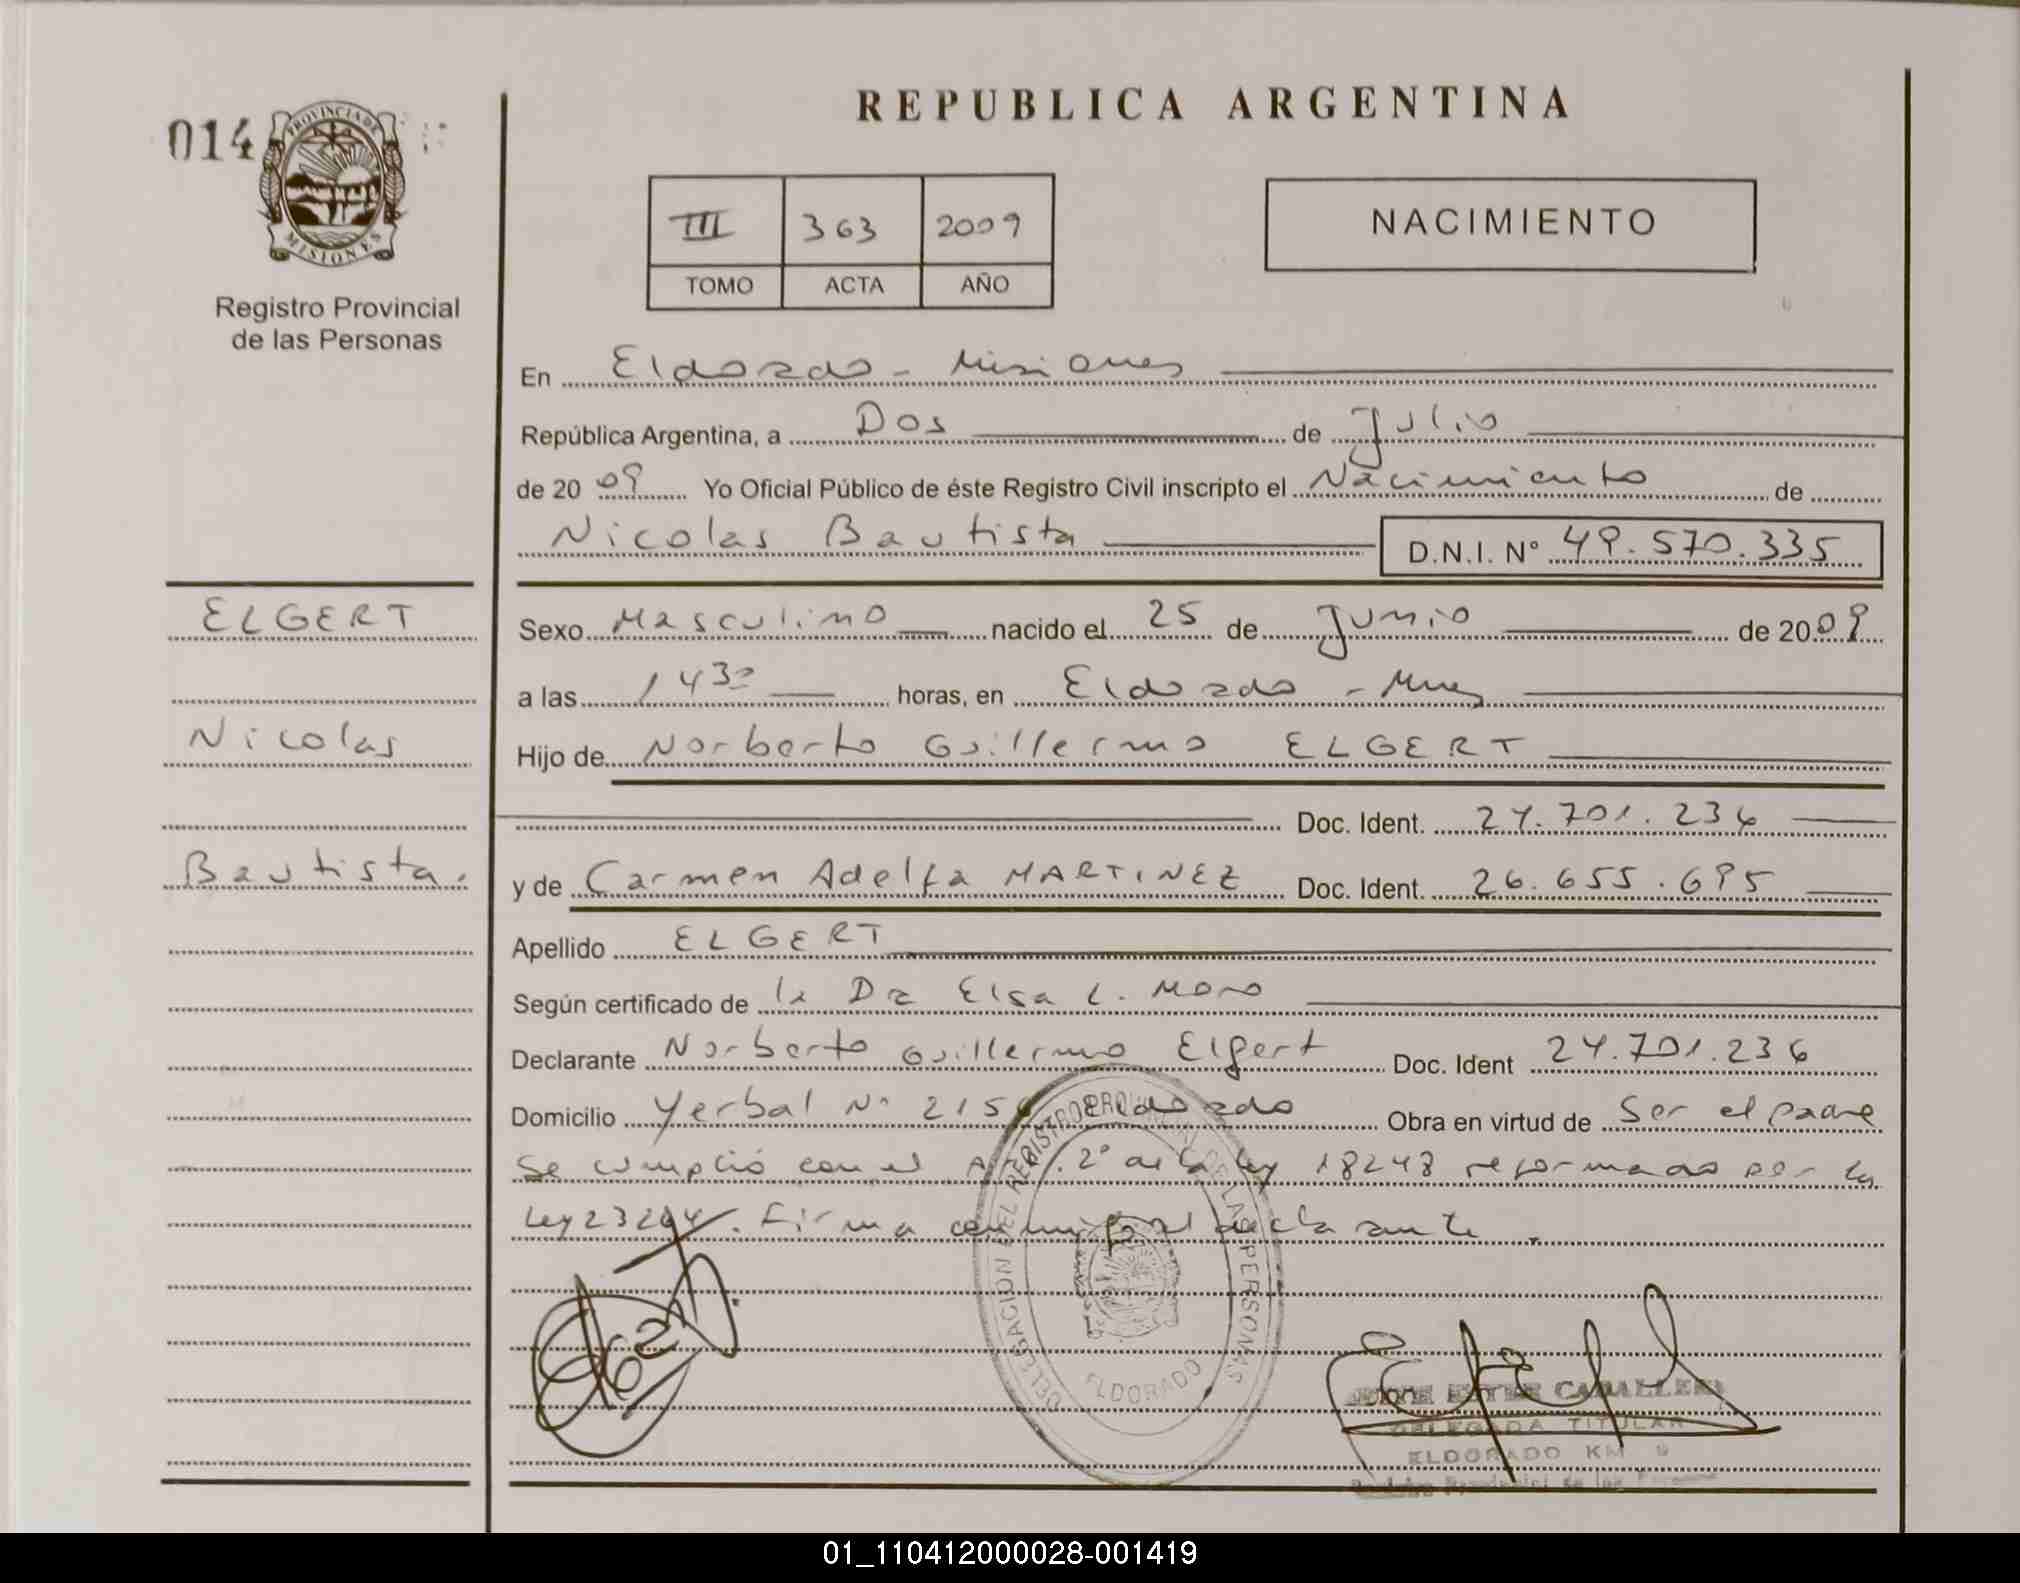 014
PROVINCIA DE
MISIONES
Registro Provincial
de las Personas
REPUBLICA ARGENTINA
III 363 2009
TOMO ACTA AÑO
NACIMIENTO
En Eldorado - Misiones
República Argentina, a Dos de Julio
de 20 09 Yo Oficial Público de éste Registro Civil inscripto el Nacimiento de
Nicolas Bautista D.N.I. Nº 49.570.335
ELGERT
Nicolas
Bautista.
Sexo Masculino nacido el 25 de Junio de 2009
a las 1430 horas, en Eldorado - Mnes
Hijo de Norberto Guillermo ELGERT
Doc. Ident. 24.701.236
y de Carmen Adelfa MARTINEZ Doc. Ident. 26.655.695
Apellido ELGERT
Según certificado de la Dra Elsa L. Moro
Declarante Norberto Guillermo Elgert Doc. Ident 24.701.236
Domicilio Yerbal Nº 2156 Eldorado Obra en virtud de Ser el padre
Se cumplió con el Art. 2º de la Ley 18248 reformado por la
Ley 23264. Firma conmigo el declarante.
DELEGACION DEL REGISTRO PROVINCIAL DE LAS PERSONAS
ELDORADO
ESTER CABALLERO
DELEGADA TITULAR
ELDORADO KM 9
Registro Provincial de las Personas
01_110412000028-001419